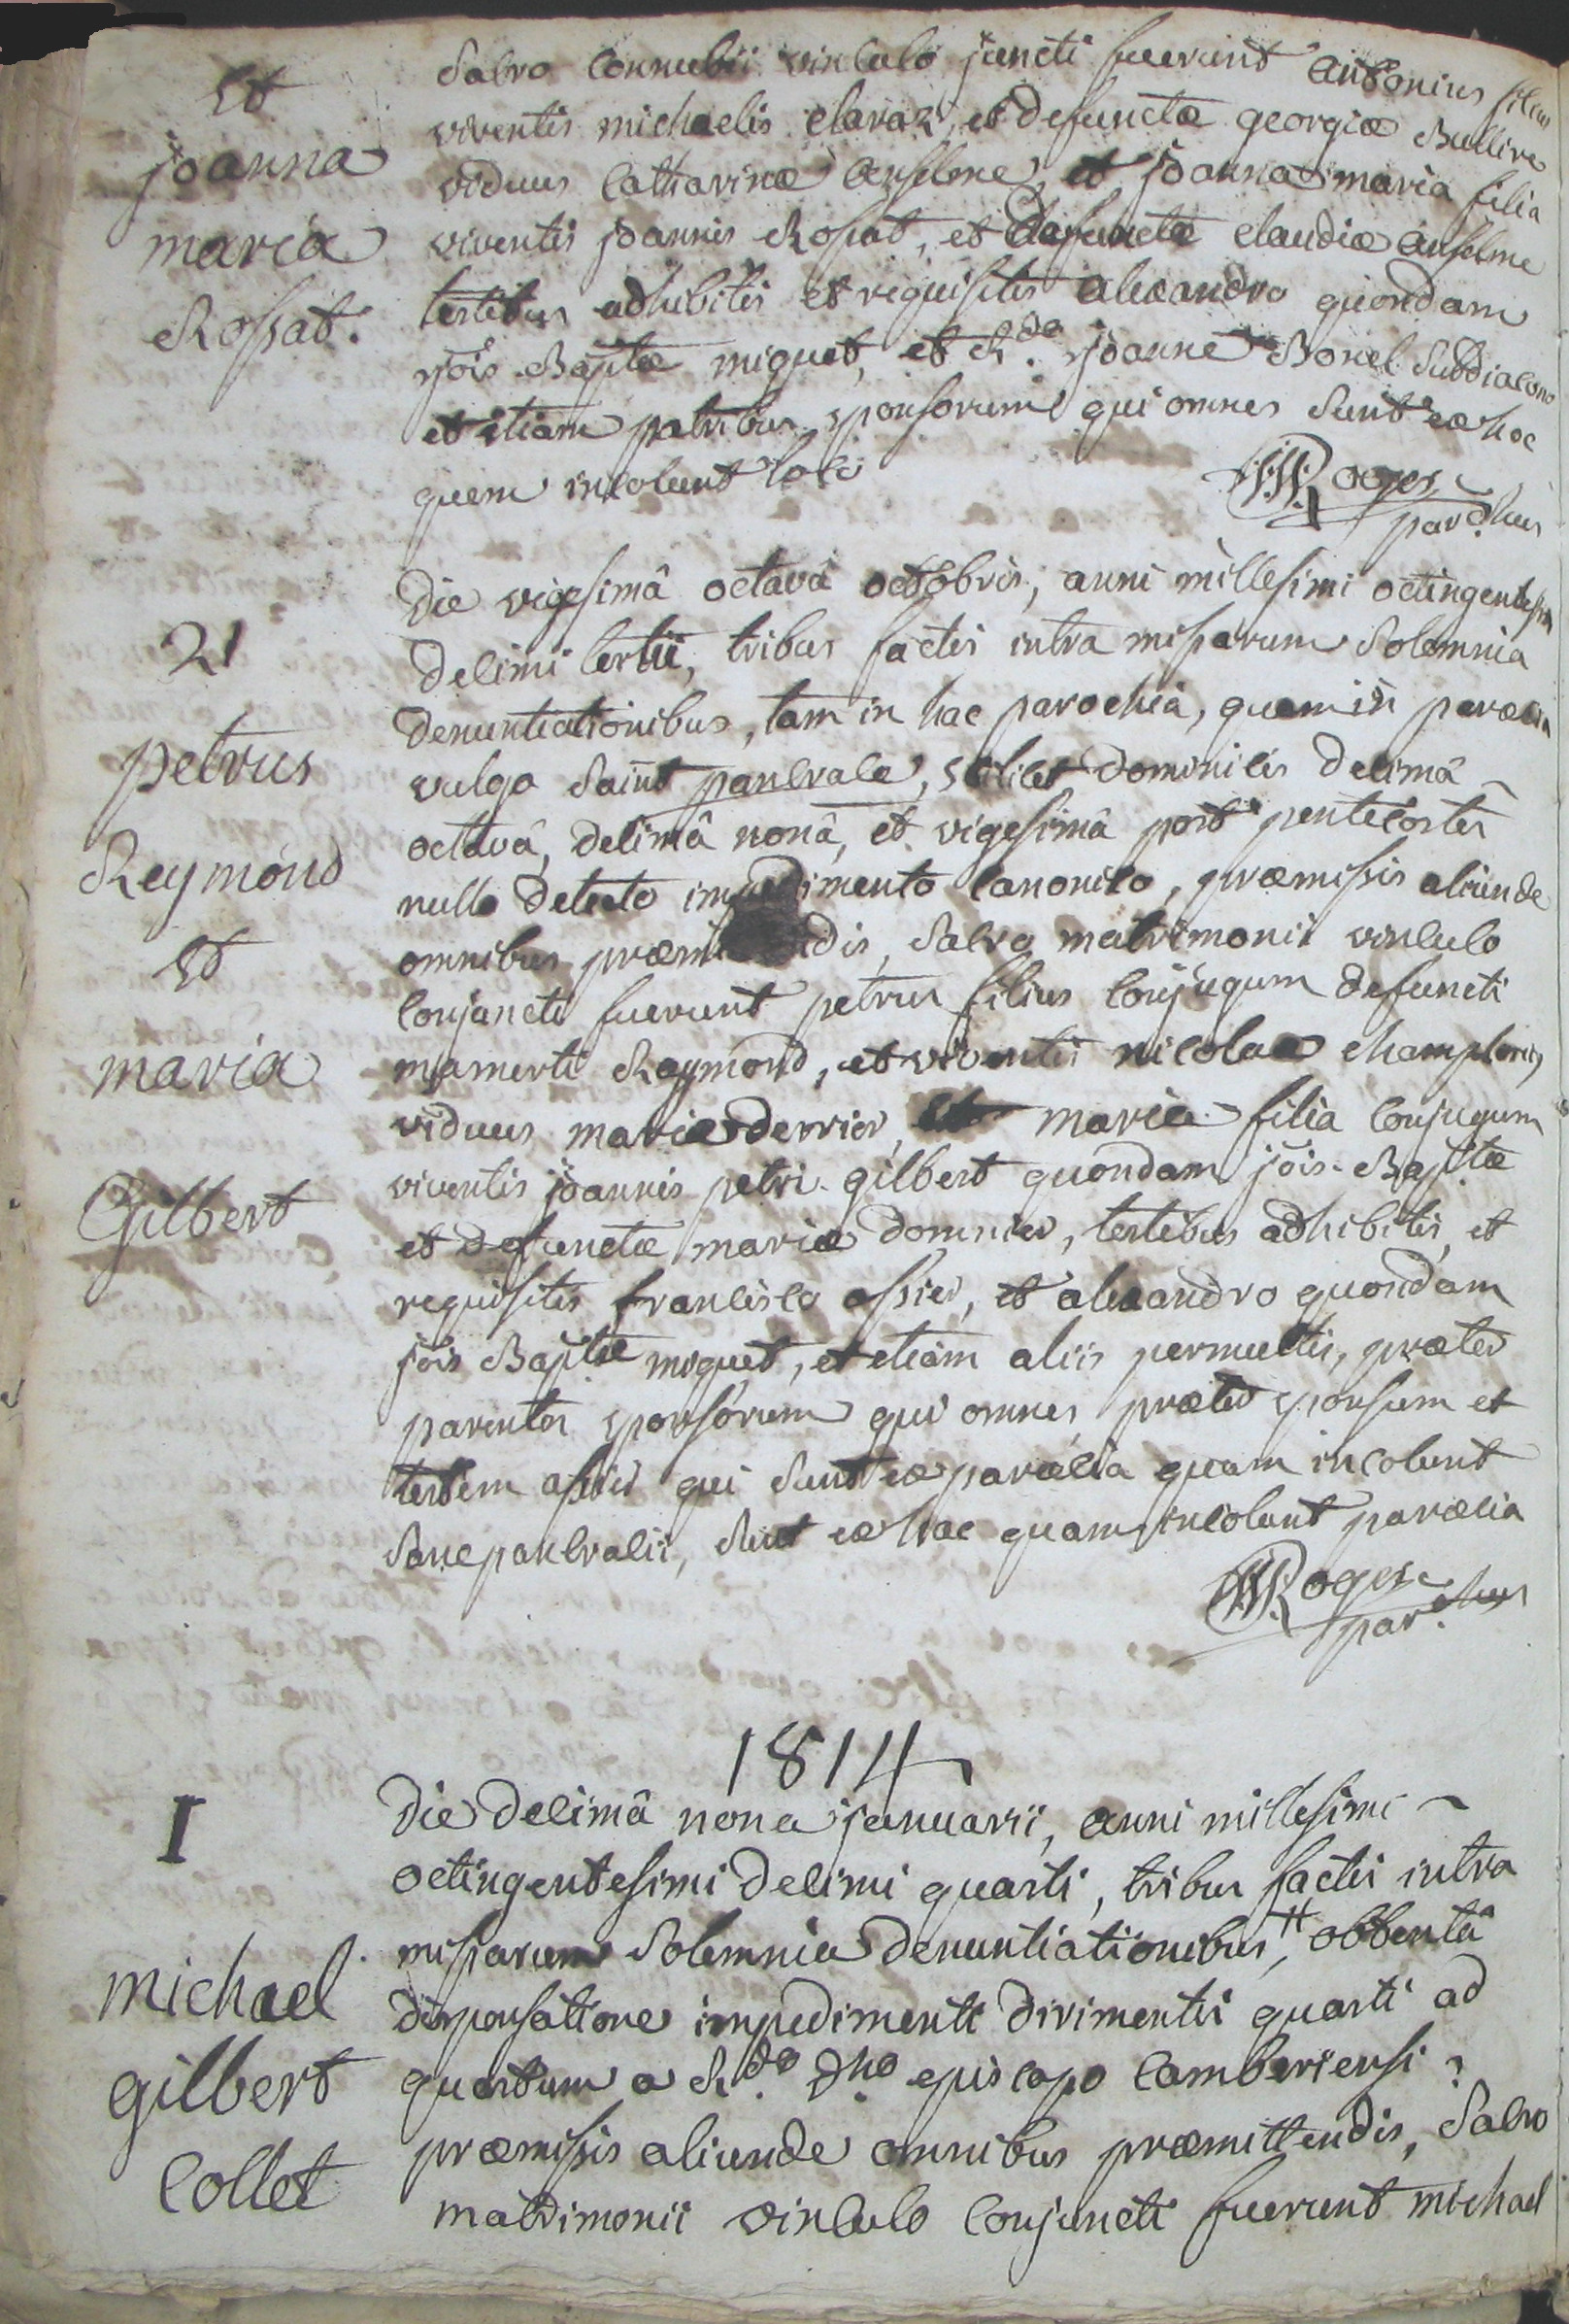 Et
joanna
maria
Rossat.
sacro connubii vinculo juncti fuerunt antonius filius
viventis michaelis claraz, et defunctæ georgiæ Bullive
viduus catharinæ anselme, et joanna maria filia
viventis joannis Rossat, et defunctæ claudiæ anselme
testibus adhibitis et requisitis alexandro quondam
jôis Baptæ miquet, et R.do joanne Borrel subdiacono
et etiam patribus sponsorum qui omnes sunt ex hoc
quem incolunt loco
Roges
par.chus
21
petrus
Reymond
Et
maria
Gilbert
Die vigesimâ octavâ octobris, anni millesimi octingentesimi
decimi tertii, tribus factis intra missarum solemnia
denuntiationibus, tam in hac parochiâ, quam in parœcia
vulgo saint pancrace, scilicet dominicis decimâ
octavâ, decimâ nonâ, et vigesimâ post pentecostes
nullo detecto impedimento canonico, præmissis aliunde
omnibus præmittendis, sacro matrimonii vinculo
conjuncti fuerunt petrus filius conjugum defuncti
mamerti Raymond, et viventis nicolaæ champlong
viduus mariæ derrier, et maria filia conjugum
viventis joannis petri gilbert quondam jôis Baptæ
et defunctæ mariæ domnier, testibus adhibitis, et
requisitis francisco assier, et alexandro quondam
jôis Baptæ miquet, et etiam aliis permultis, præter
parentes sponsorum qui omnes præter sponsum et
testem assier qui sunt ex parœcia quam incolunt
sancpancratii, sunt ex hac quam incolunt parœcia
Roges
par.chus
1814
I
michael
gilbert
Collet
Die decimâ nona januarii, anni millesimi
octingentesimi decimi quarti, tribus factis intra
missarum solemnia denuntiationibus, obtentâ
dispensatione impedimenti dirimentis quarti ad
quartum a R.do D.no episcopo camberiensi,
præmissis aliunde omnibus præmittendis, sacro
matrimonii vinculo conjuncti fuerunt michael